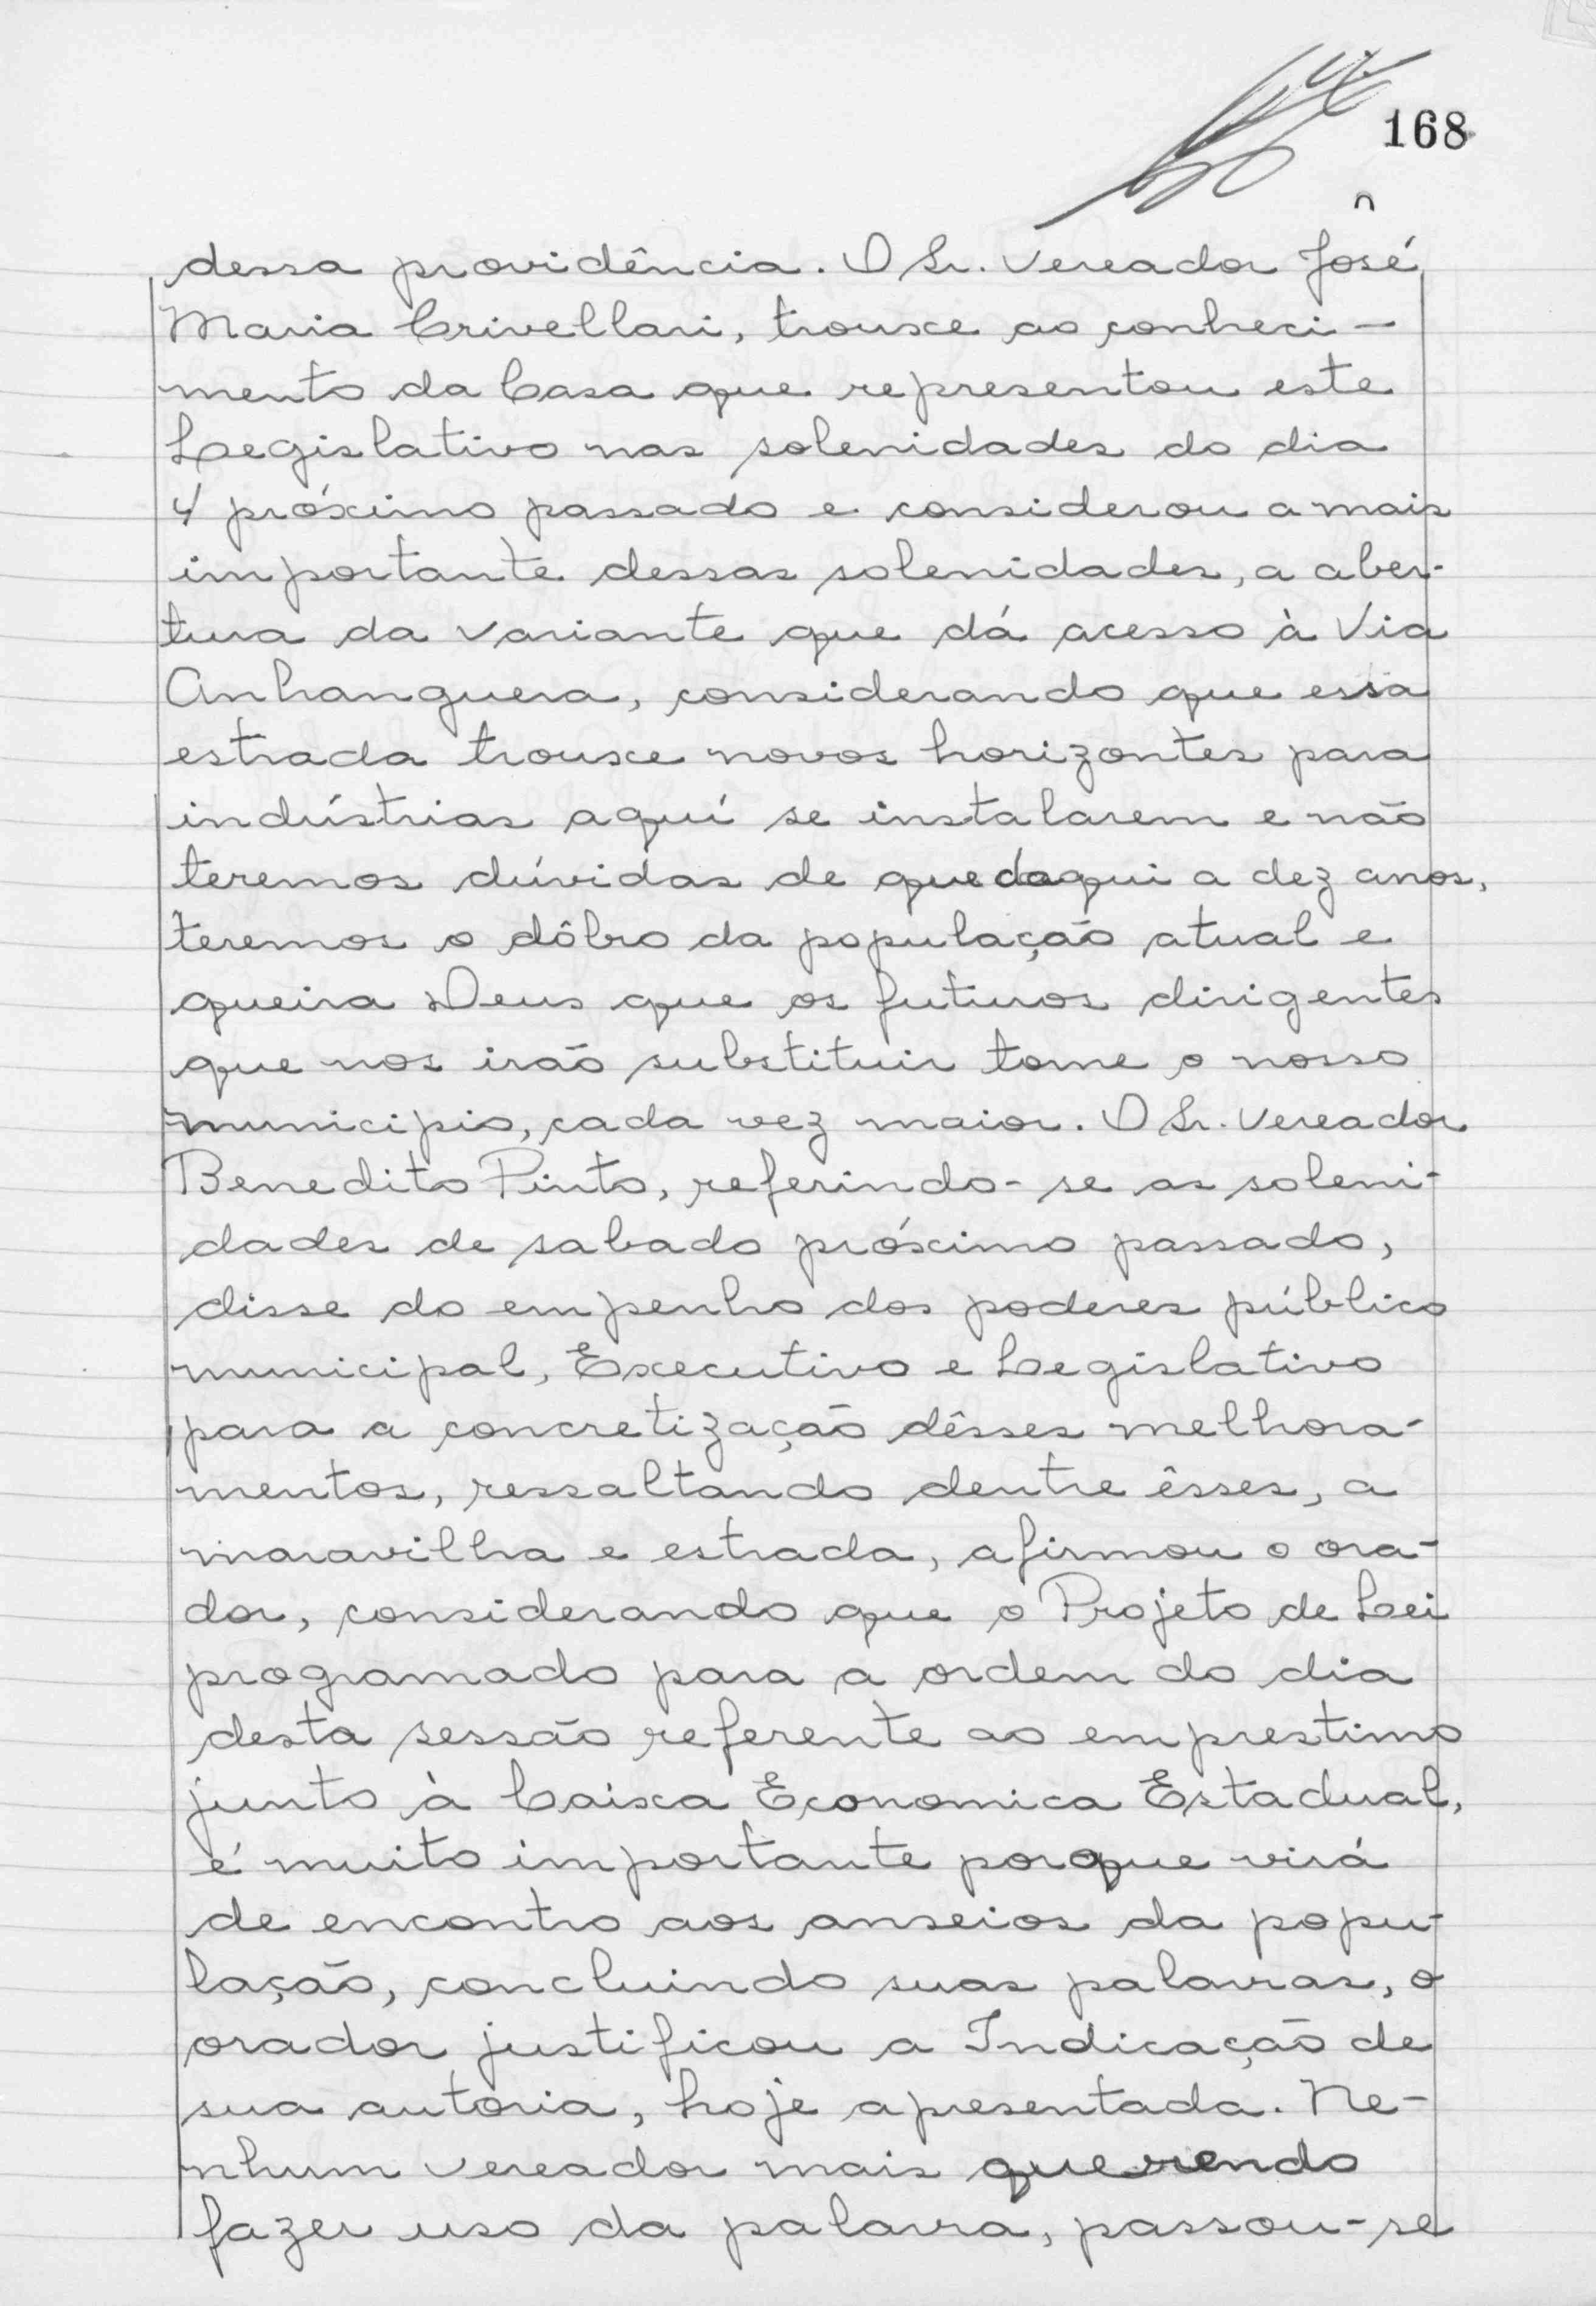 168
dessa providência. O Sr. Vereador José
Maria Crivellari, trouxe ao conheci-
mento da Casa que representou este
Legislativo nas solenidades do dia
4 próximo passado e considerou a mais
importante dessas solenidades, a aber-
tura da variante que dá acesso à Via
Anhanguera, considerando que essa
estrada trouxe novos horizontes para
indústrias aquí se instalarem e não
teremos dúvidas de que daqui a dez anos,
teremos o dôbro da população atual e
queira Deus que os futuros dirigentes
que nos irão substituir torne o nosso
municipio, cada vez maior. O Sr. Vereador
Benedito Pinto, referindo-se as soleni-
dades de sabado próximo passado,
disse do empenho dos poderes público
municipal, Executivo e Legislativo
para a concretização dêsses melhora-
mentos, ressaltando dentre êsses, a
maravilha e estrada, afirmou o ora-
dor, considerando que o Projeto de Lei
programado para a ordem do dia
desta sessão referente ao emprestimo
junto à Caixa Economica Estadual,
é muito importante porque virá
de encontro aos anseios da popu-
lação, concluindo suas palavras, o
orador justificou a Indicação de
sua autoria, hoje apresentada. Ne-
nhum vereador mais querendo
fazer uso da palavra, passou-se